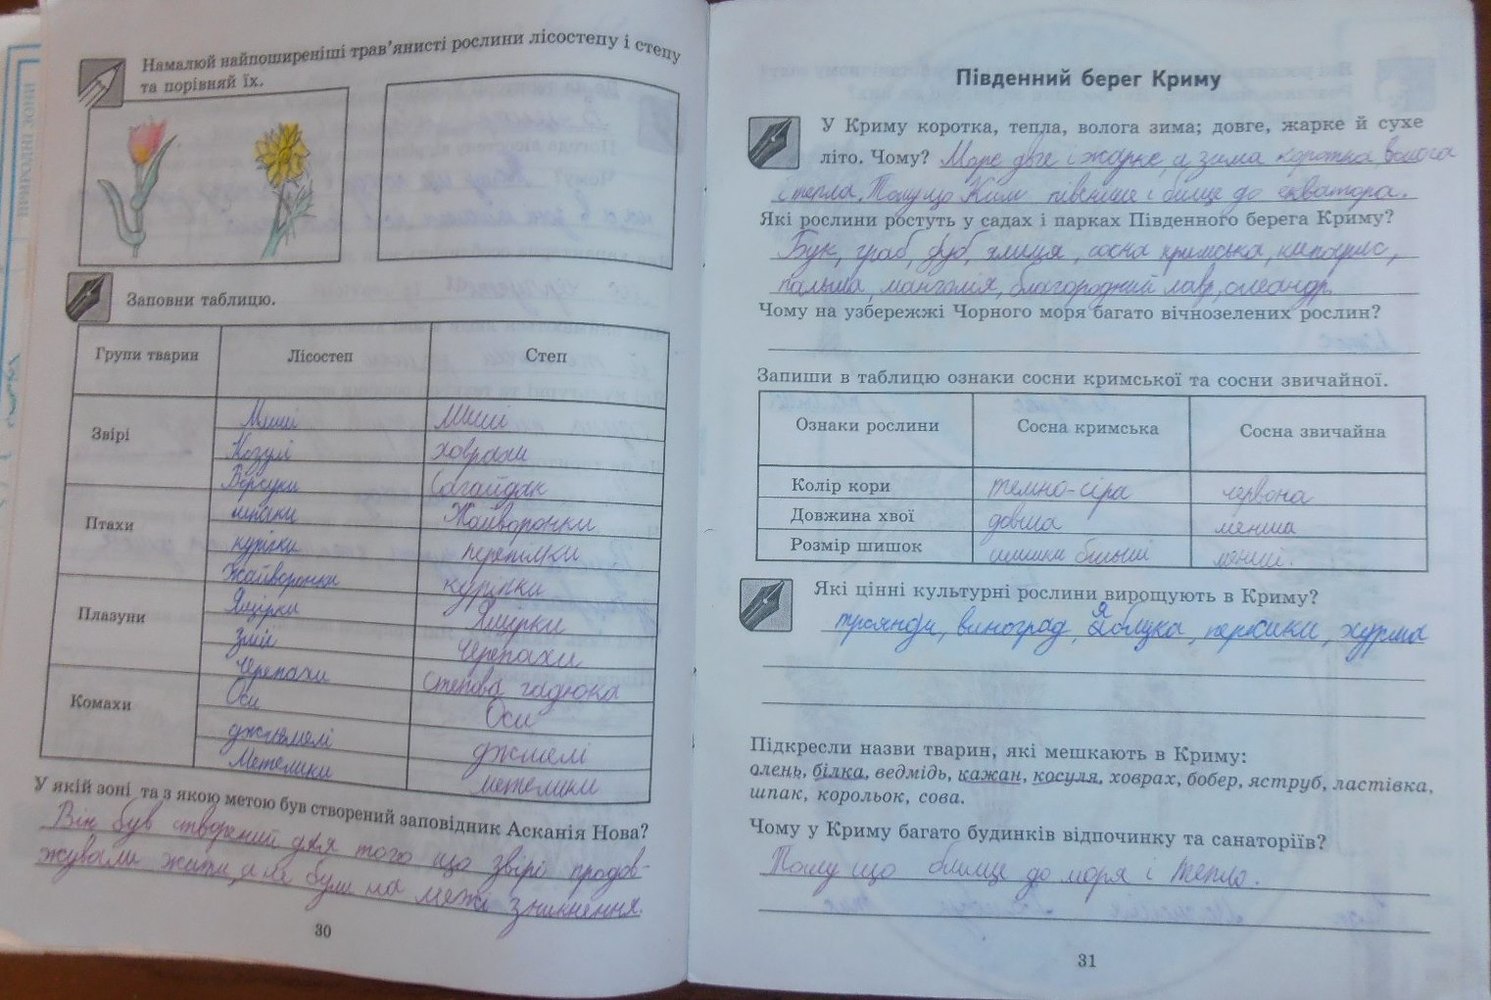 Намалюй найпоширеніші трав’янисті рослини лісостепу і степу
та порівняй їх.
Заповни таблицю.
Групи тварин Лісостеп Степ
Звірі
Миші миші
Козулі ховрахи
Борсуки Сагайдак
Птахи
шпаки Жайворонки
курізки перепілки
Жайворонки куріпки
Плазуни
Ящірки Ящірки
Змії Черепахи
Черепахи степова гадюка
Комахи
Оси Оси
джьмелі джмелі
Метелики метелики
У якій зоні та з якою метою був створений заповідник Асканія Нова?
Він був створений для того що звірі продов-
жували жити, а не були на межі зникнення.
30
Південний берег Криму
У Криму коротка, тепла, волога зима; довге, жарке й сухе
літо. Чому? Море дуже і жарке, а зима коротка волога
і тепла. Тому що Крим півенніше і блище до екватора.
Які рослини ростуть у садах і парках Південного берега Криму?
Бук, граб, дуб, ялиця, сосна кримська, кипарис,
пальма, манголія, благородний лавр, олеандр.
Чому на узбережжі Чорного моря багато вічнозелених рослин?
Запиши в таблицю ознаки сосни кримської та сосни звичайної.
Ознаки рослини Сосна кримська Сосна звичайна
Колір кори темно-сіра червона
Довжина хвої довша менша
Розмір шишок шишки більші менші.
Які цінні культурні рослини вирощують в Криму?
троянди, виноград, яблука, персики, хурма
Підкресли назви тварин, які мешкають в Криму:
олень, білка, ведмідь, кажан, косуля, ховрах, бобер, яструб, ластівка,
шпак, корольок, сова.
Чому у Криму багато будинків відпочинку та санаторіїв?
Тому що блище до моря і тепло.
31